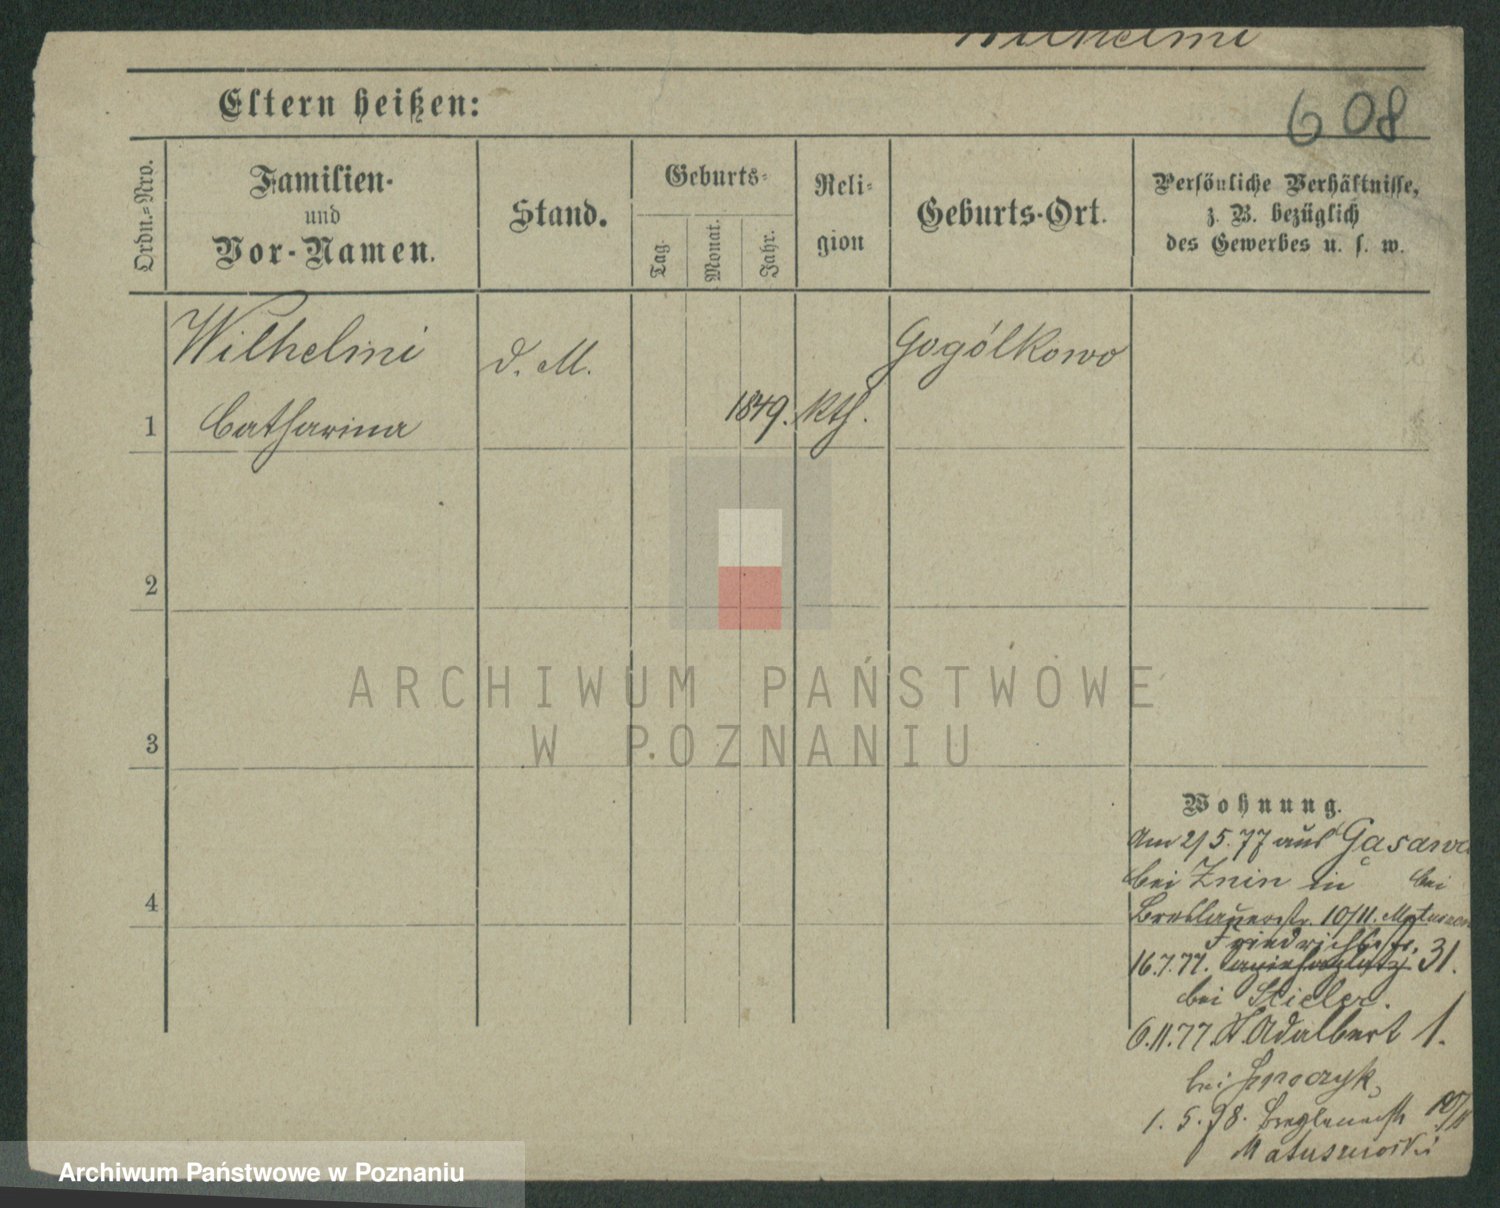 Wilhelmi
Eltern heißen:
608
Ordn.=Nro.
Familien-
und
Vor-Namen.
Stand.
Geburts=
Tag.
Monat.
Jahr.
Reli=
gion
Geburts-Ort.
Persönliche Verhältnisse,
z. B. bezüglich
des Gewerbes u. s. w.
Wilhelmi
d. M.
Gogółkowo
1
Catharina
1849.
kth.
2
3
4
ARCHIWUM PAŃSTWOWE
W POZNANIU
Wohnung.
Am 2/5.77 aus Gąsawa
bei Znin in bei
Breslauerstr. 10/11.
Friedrichstr. 31.
16.7.77.
bei Stieler.
6.11.77. St Adalbert 1.
bei
1. 5. 78. 10/11
Matuszewski
Archiwum Państwowe w Poznaniu